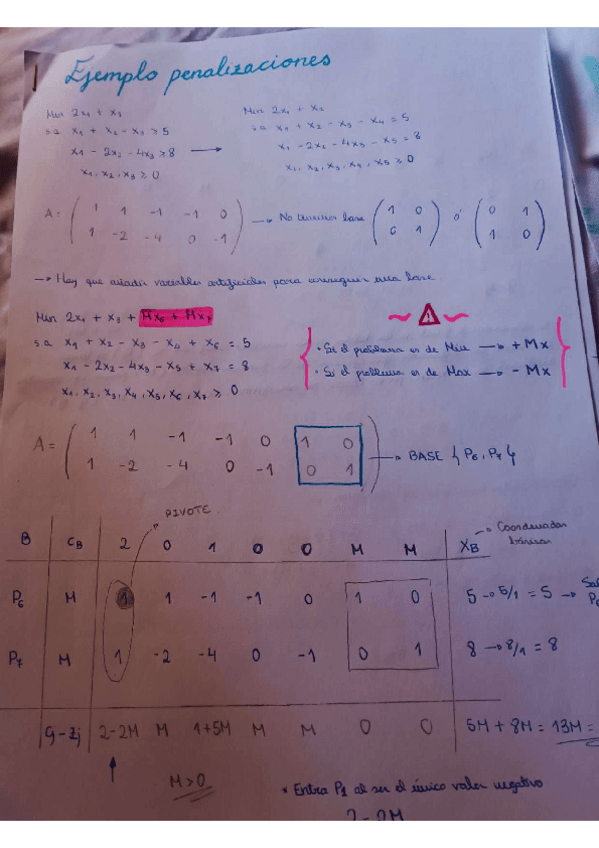 Ejemplo penalizaciones
Min 2x₁ + x₃
s.a x₁ + x₂ - x₃ ≥ 5
x₁ - 2x₂ - 4x₃ ≥ 8 →
x₁, x₂, x₃ ≥ 0
Min 2x₁ + x₃
s.a x₁ + x₂ - x₃ - x₄ = 5
x₁ - 2x₂ - 4x₃ - x₅ = 8
x₁, x₂, x₃, x₄, x₅ ≥ 0
A = ( 1 1 -1 -1 0 ) → No tenemos base ( 1 0 ) ó ( 0 1 )
( 1 -2 -4 0 -1 ) ( 0 1 ) ( 1 0 )
→ Hay que añadir variables artificiales para conseguir una base.
Min 2x₁ + x₃ + Mx₆ + Mx₇
s.a x₁ + x₂ - x₃ - x₄ + x₆ = 5
x₁ - 2x₂ - 4x₃ - x₅ + x₇ = 8
x₁, x₂, x₃, x₄, x₅, x₆, x₇ ≥ 0
~ ⚠ ~
· Si el problema es de Min → + Mx
· Si el problema es de Max → - Mx
A = ( 1 1 -1 -1 0 1 0 )
( 1 -2 -4 0 -1 0 1 ) → BASE { P₆, P₇ }
PIVOTE
B C_B 2 0 1 0 0 M M X_B
P₆ M 1 1 -1 -1 0 1 0 5 → 5/1 = 5 →
P₇ M 1 -2 -4 0 -1 0 1 8 → 8/1 = 8
Cj - Zj 2-2M M 1+5M M M 0 0 5M + 8M = 13M =
↑ M > 0
* Entra P₁ al ser el único valor negativo
2 - 2M